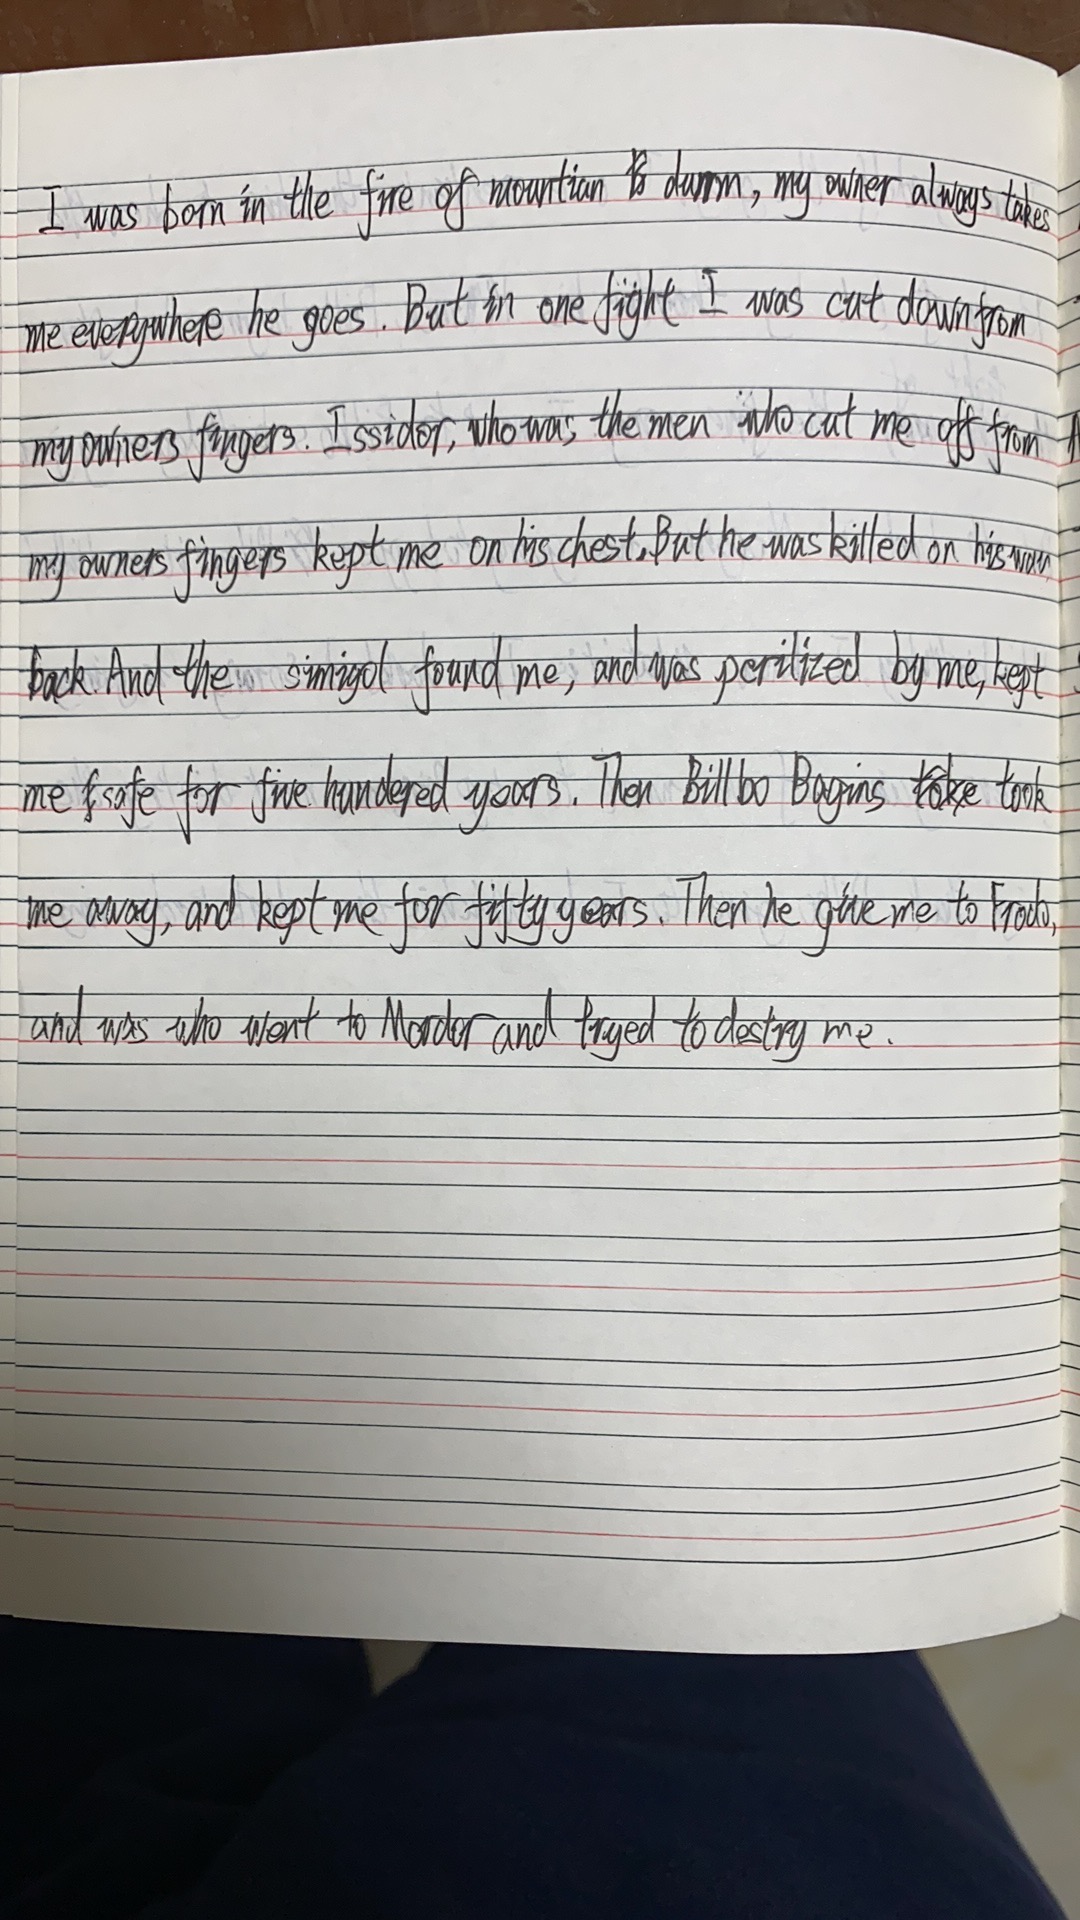 I was born in the fire of mountian dumm, my owner always takes
me everywhere he goes. But in one fight I was cut down from
my owners fingers. Issidor, who was the men who cut me off from
my owners fingers kept me on his chest, But he was killed on his way
back. And the simigol found me, and was perilized by me, kept
me safe for five hundered years. Then Billbo Bagins took
me away, and kept me for fifty years. Then he give me to Frodo,
and was who went to Mordor and tryed to destry me.